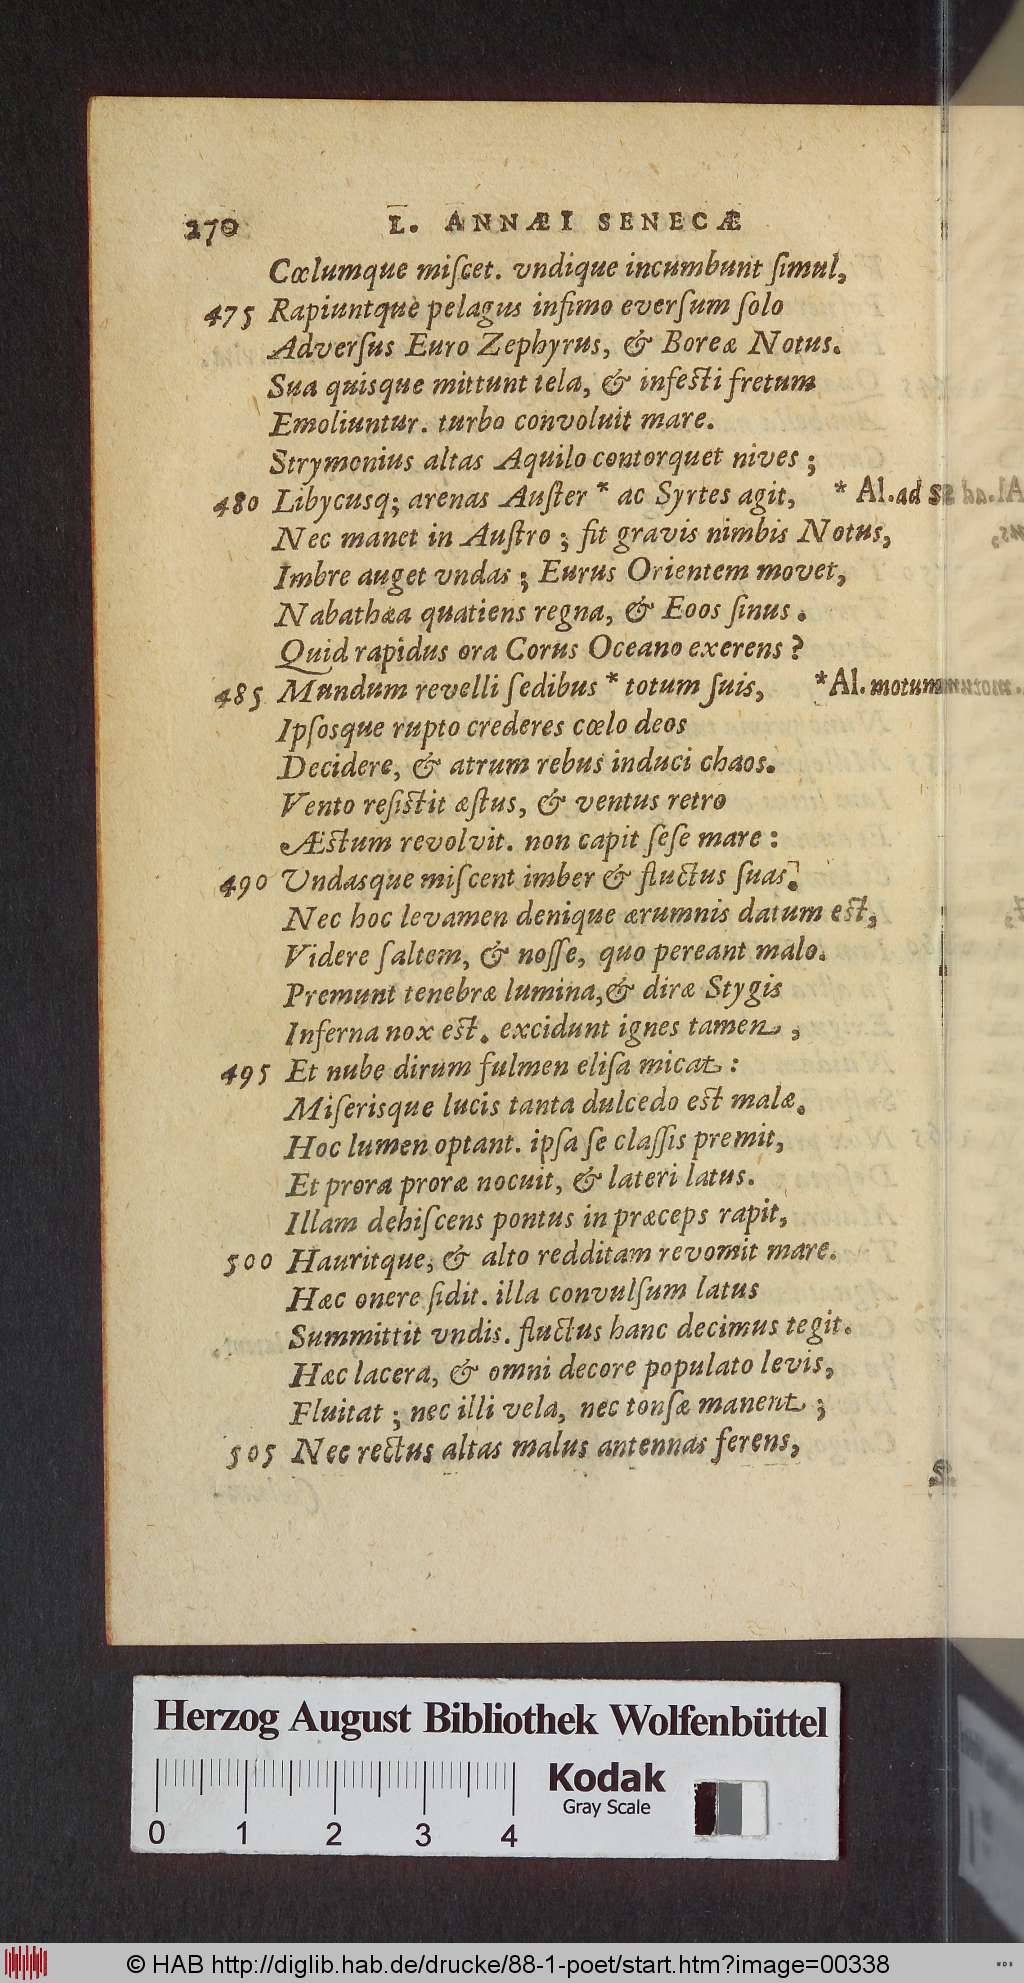 270 L. ANNÆI SENECÆ
Cœlumque miſcet. vndique incumbunt ſimul,
475 Rapiuntquè pelagus infimo everſum ſolo
Adverſus Euro Zephyrus, & Boreæ Notus.
Sua quisque mittunt tela, & infeſti fretum
Emoliuntur. turbo convoluit mare.
Strymonius altas Aquilo contorquet nives ;
480 Libycusq; arenas Auſter * ac Syrtes agit, * Al. ad
Nec manet in Auſtro ; fit gravis nimbis Notus,
Imbre auget vndas ; Eurus Orientem movet,
Nabathæa quatiens regna, & Eoos ſinus.
Quid rapidus ora Corus Oceano exerens ?
485 Mundum revelli ſedibus * totum ſuis, * Al. motum
Ipſosque rupto crederes cœlo deos
Decidere, & atrum rebus induci chaos.
Vento reſiſtit æſtus, & ventus retro
Æſtum revolvit. non capit ſeſe mare :
490 Undasque miſcent imber & fluctus ſuas.
Nec hoc levamen denique ærumnis datum eſt,
Videre ſaltem, & noſſe, quo pereant malo.
Premunt tenebræ lumina, & diræ Stygis
Inferna nox eſt. excidunt ignes tamen ,
495 Et nube dirum fulmen eliſa micat :
Miſerisque lucis tanta dulcedo eſt malæ.
Hoc lumen optant. ipſa ſe claſſis premit,
Et prora proræ nocuit, & lateri latus.
Illam dehiſcens pontus in præceps rapit,
500 Hauritque, & alto redditam revomit mare.
Hæc onere ſidit. illa convulſum latus
Summittit vndis. fluctus hanc decimus tegit.
Hæc lacera, & omni decore populato levis,
Fluitat ; nec illi vela, nec tonſæ manent ;
505 Nec rectus altas malus antennas ferens,
Herzog August Bibliothek Wolfenbüttel
0 1 2 3 4
Kodak
Gray Scale
© HAB http://diglib.hab.de/drucke/88-1-poet/start.htm?image=00338